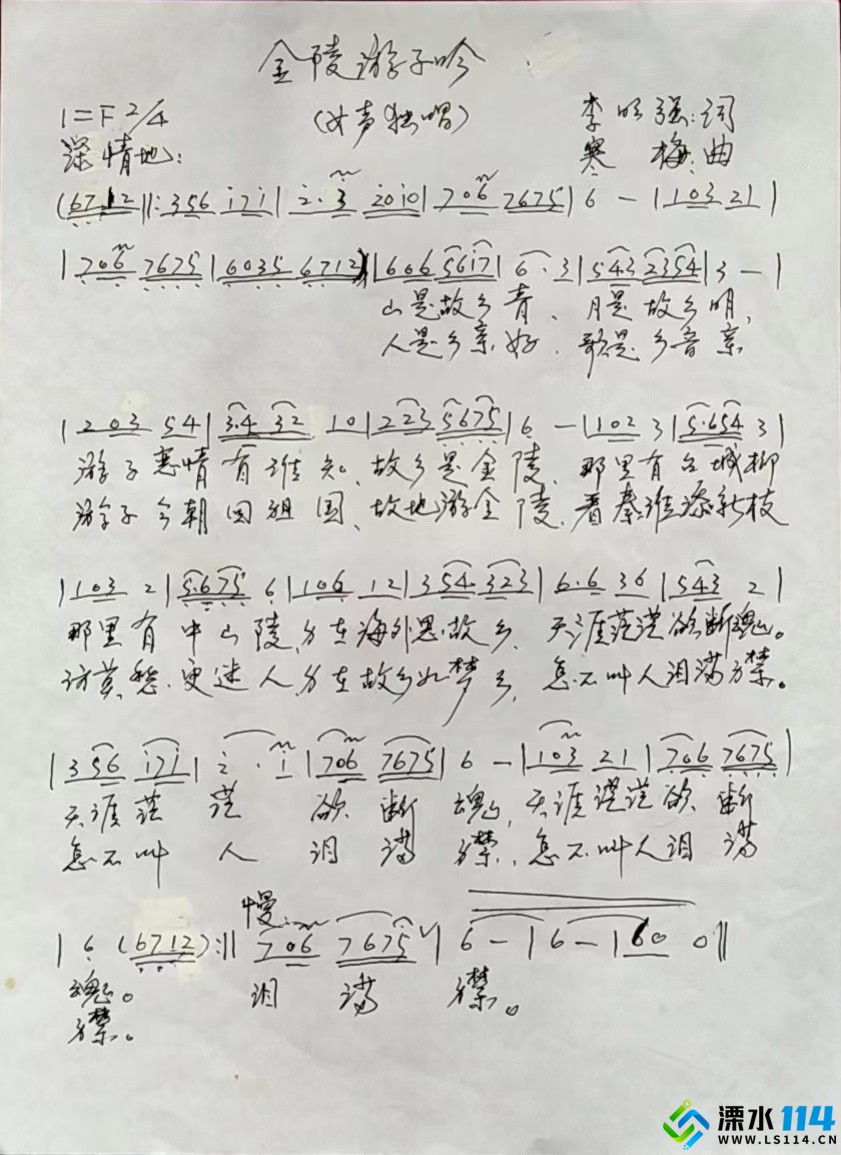 金陵游子吟
1=F 2/4 (女声独唱) 李明强:词
深情地: 寒 梅:曲
(6712‖:356 i7i|2·3 20i0|706 7675|6 -|103 21|
|706 7675|6035 6712)|606 5617|6·3|543 2354|3 -|
山是故乡青、月是故乡明,
人是乡亲好、歌是乡音亲
|203 54|3·4 32 10|223 5675|6 -|102 3|5·654 3|
游子悲情有谁知、故乡是金陵、那里有台城柳
游子今朝回祖国、故地游金陵、看秦淮添新枝
|103 2|5·675 6|106 12|354 323|6·6 36|543 2|
那里有中山陵、身在海外思故乡、天涯茫茫欲断魂。
访莫愁、更迷人、身在故乡如梦乡、怎不叫人泪满襟。
|356 i7i|2·i|706 7675|6 -|103 21|706 7675|
天涯茫茫欲断魂,天涯茫茫欲断
怎不叫人泪满襟,怎不叫人泪满
慢:
|6 (6712):‖706 7675∨|6 -|6 -|60 0‖
魂。 泪 满 襟。
襟。
溧水114
WWW.LS114.CN